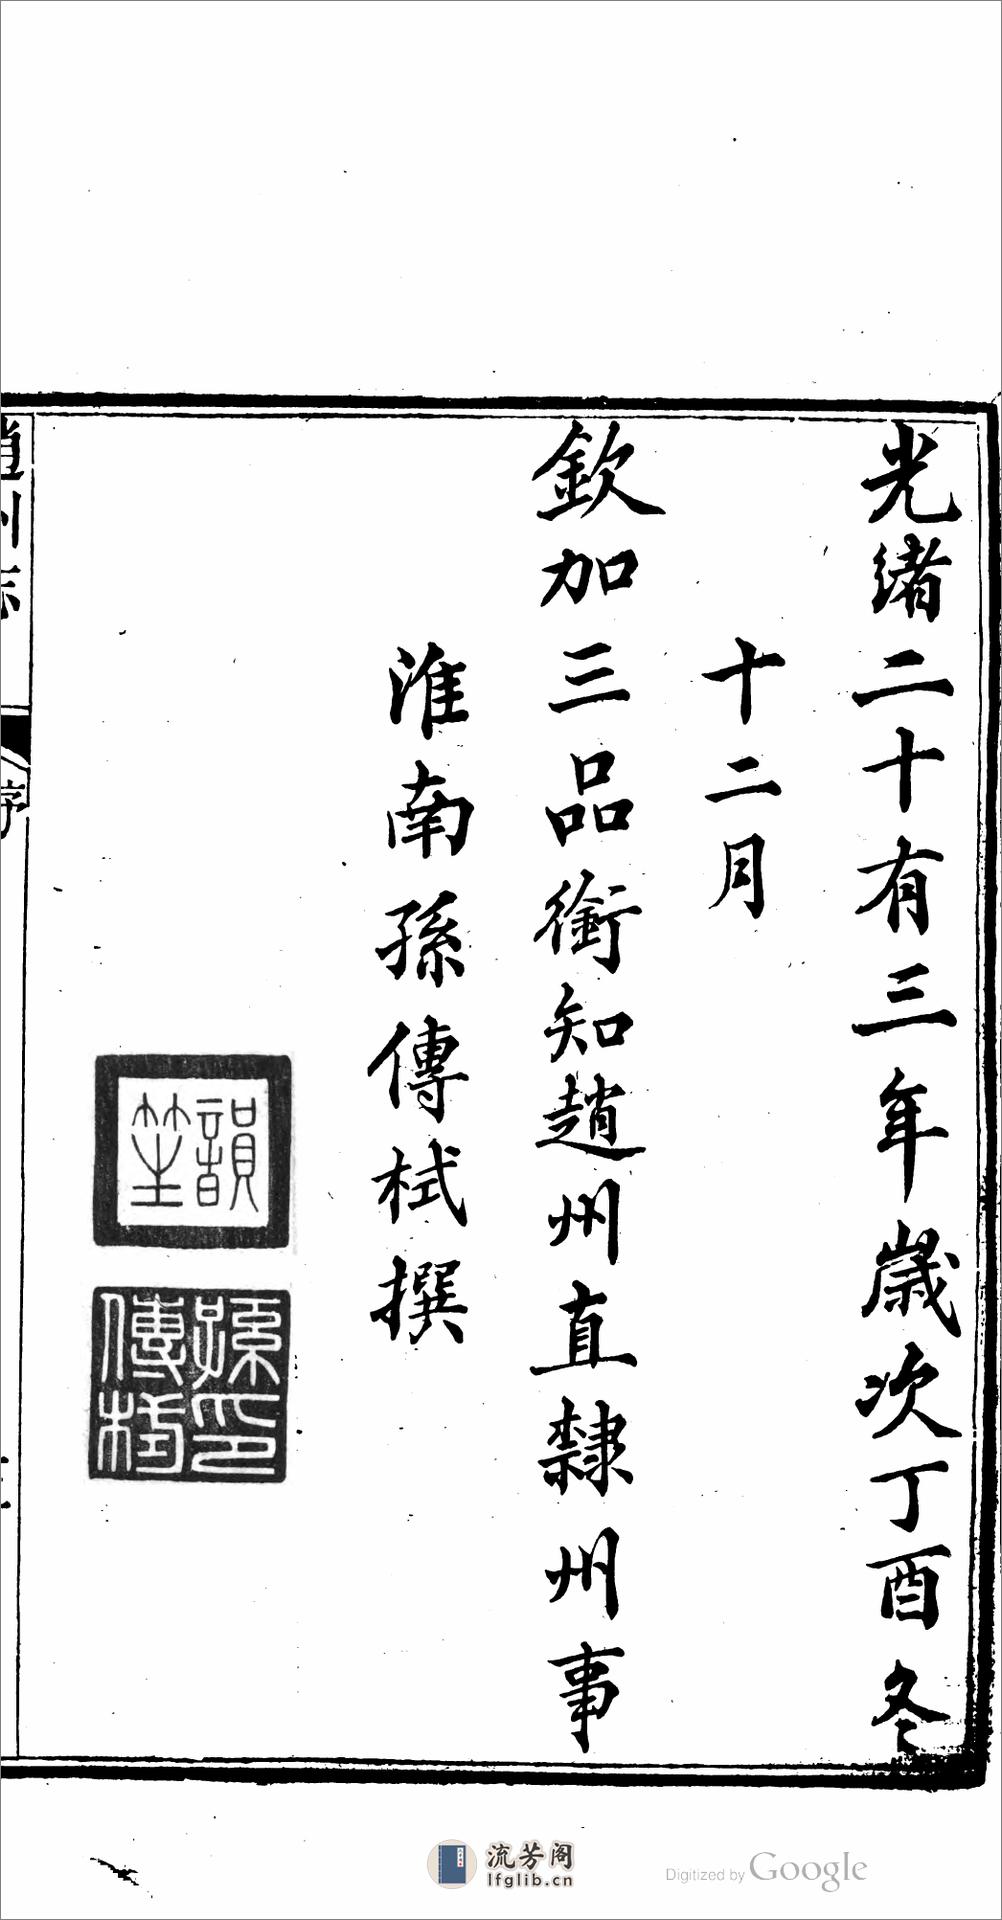 光緒二十有三年歲次丁酉冬
十二月
欽加三品銜知趙州直隸州事
淮南孫傳栻撰
孫印
傳栻
趙州志
序
流芳阁
lfglib.cn
Digitized by Google